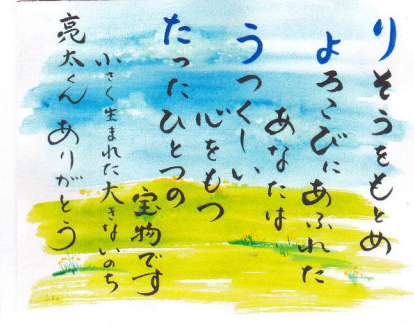 りそうをもとめ
よろこびにあふれた
あなたは
うつくしい
心をもつ
たったひとつの
宝物です
小さく生まれた大きないのち
亮太くん ありがとう